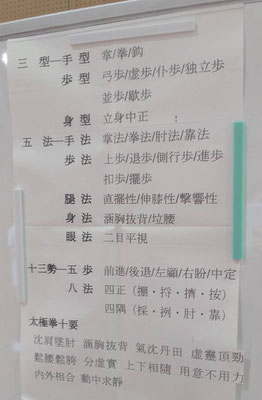 三 型—手型 掌/拳/鈎
步型 弓步/虛步/仆步/独立步
並步/歇步
身型 立身中正
五 法—手法 掌法/拳法/肘法/靠法
步法 上步/退步/側行步/進步
扣步/擺步
腿法 直擺性/伸膝性/擊響性
身法 涵胸拔背/垃腰
眼法 二目平視
十三勢—五步 前進/後退/左顧/右盼/中定
八法 四正（掤・捋・擠・按）
四隅（採・挒・肘・靠）
太極拳十要
沈肩墜肘 涵胸拔背 氣沈丹田 虛靈頂勁
鬆腰鬆胯 分虛實 上下相隨 用意不用力
内外相合 動中求靜